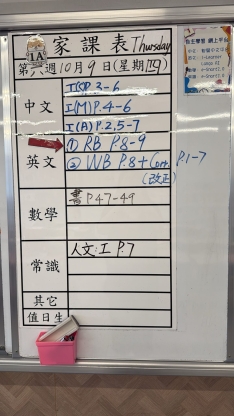 1A 家課表 Thursday
第六週10月9日(星期四)
中文
I(S)P.3-6
I(M)P.4-6
I(A)P.2,5-7
英文
① RB P.8-9
② WB P.8+Corr. P.1-7
(改正)
數學
書P.47-49
常識
人文:I P.7
其它
值日生
自主學習 網上平台